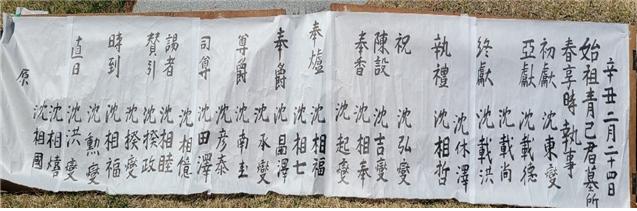 辛丑二月二十四日
始祖青己君墓所
春享時執事
初獻 沈東燮
亞獻 沈載德
沈載尚
終獻 沈載洪
沈休澤
執禮 沈相哲
祝 沈弘燮
陳設 沈吉燮
沈相奉
奉香 沈起燮
奉爐 沈相福
沈相七
奉爵 沈昌澤
沈承燮
尊爵 沈南圭
沈彦泰
司尊 沈田澤
沈相億
謁者 沈相睦
贊引 沈揆政
沈揆燮
時到 沈相福
沈勳燮
直日 沈洪燮
沈相熺
沈相國
原